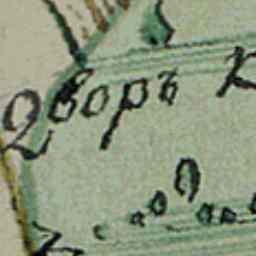 Дворъ К